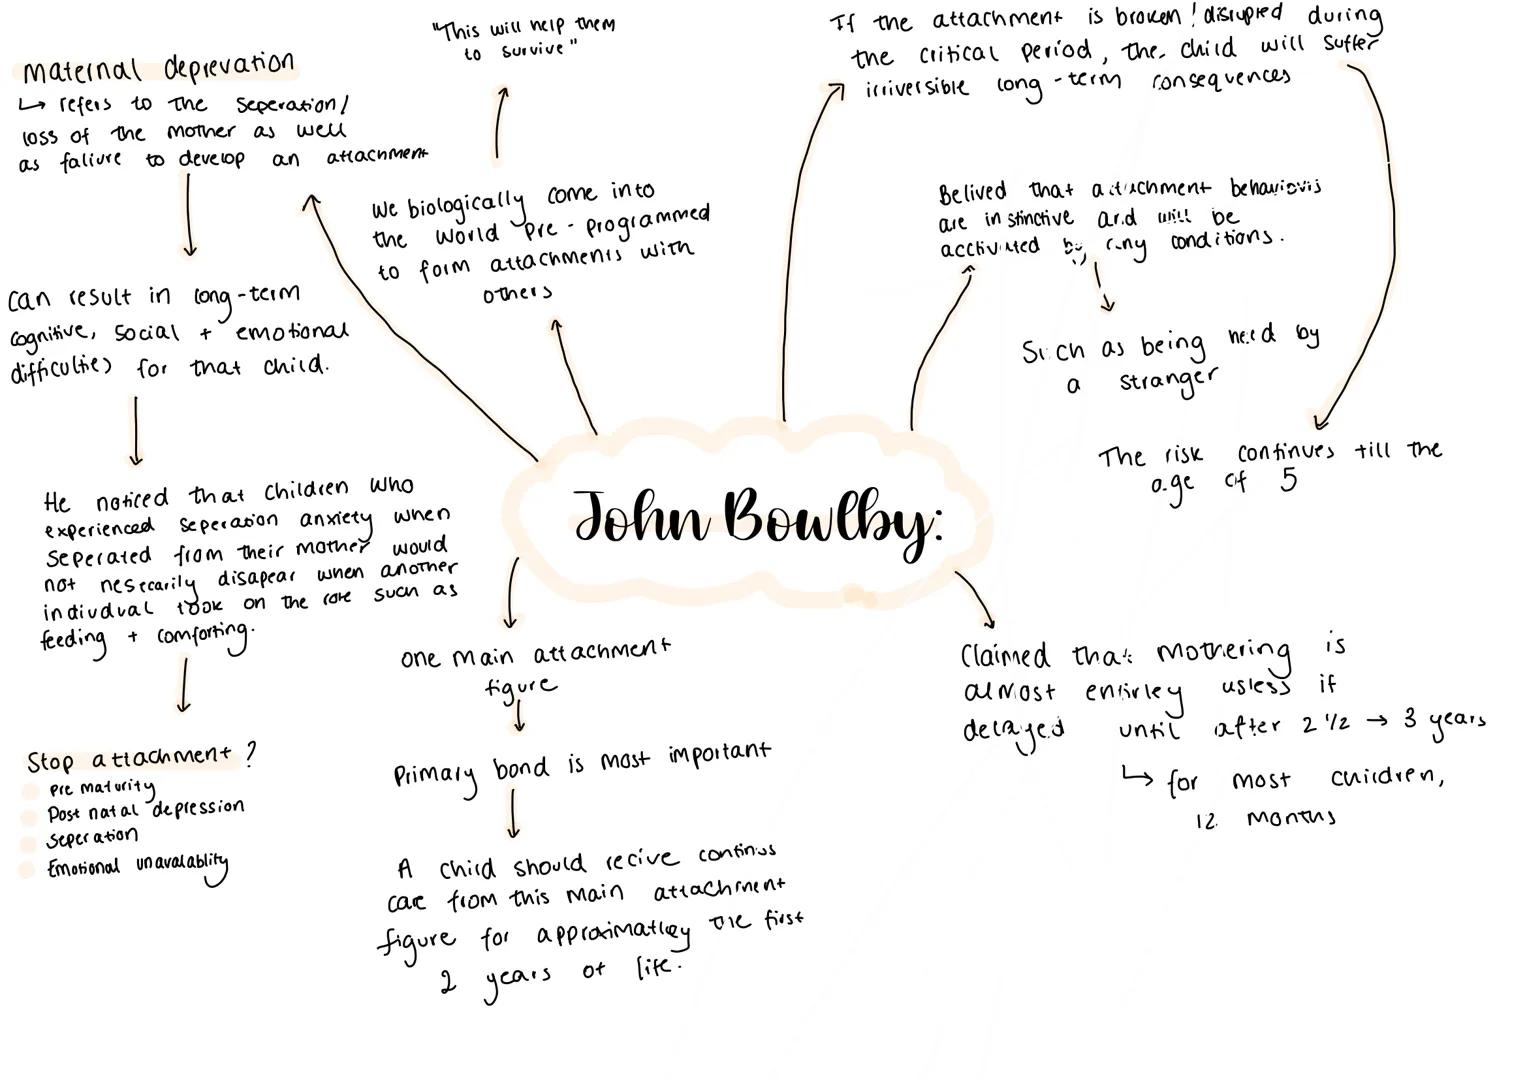 John Bowlby:
maternal deprevation
↳ refers to the seperation/
loss of the mother as well
as faliure to develop an attachment
can result in long-term
cognitive, social + emotional
difficulties for that child.
He noticed that children who
experienced seperason anxiety when
seperated from their mother would
not nessecarily disapear when another
indivdual took on the role such as
feeding + comforting.
Stop attachment?
Pre maturity
Post natal depression
seperation
Emotional unavalablity
"This will help them
to survive"
We biologically come into
the world pre-programmed
to form attachments with
others
If the attachment is broken/disrupted during
the critical period, the child will suffer
irriversible long-term consequences
The risk continues till the
age of 5
Belived that attachment behaviovis
are instinctive and will be
acctivated by any conditions.
Such as being held by
a stranger
one main attachment
figure
Primary bond is most important
A child should recive continus
care from this main attachment
figure for approximatley the first
2 years of life.
Claimed that mothering is
almost entirley usless if
delayed until after 2 1/2 → 3 years
↳ for most children,
12 months